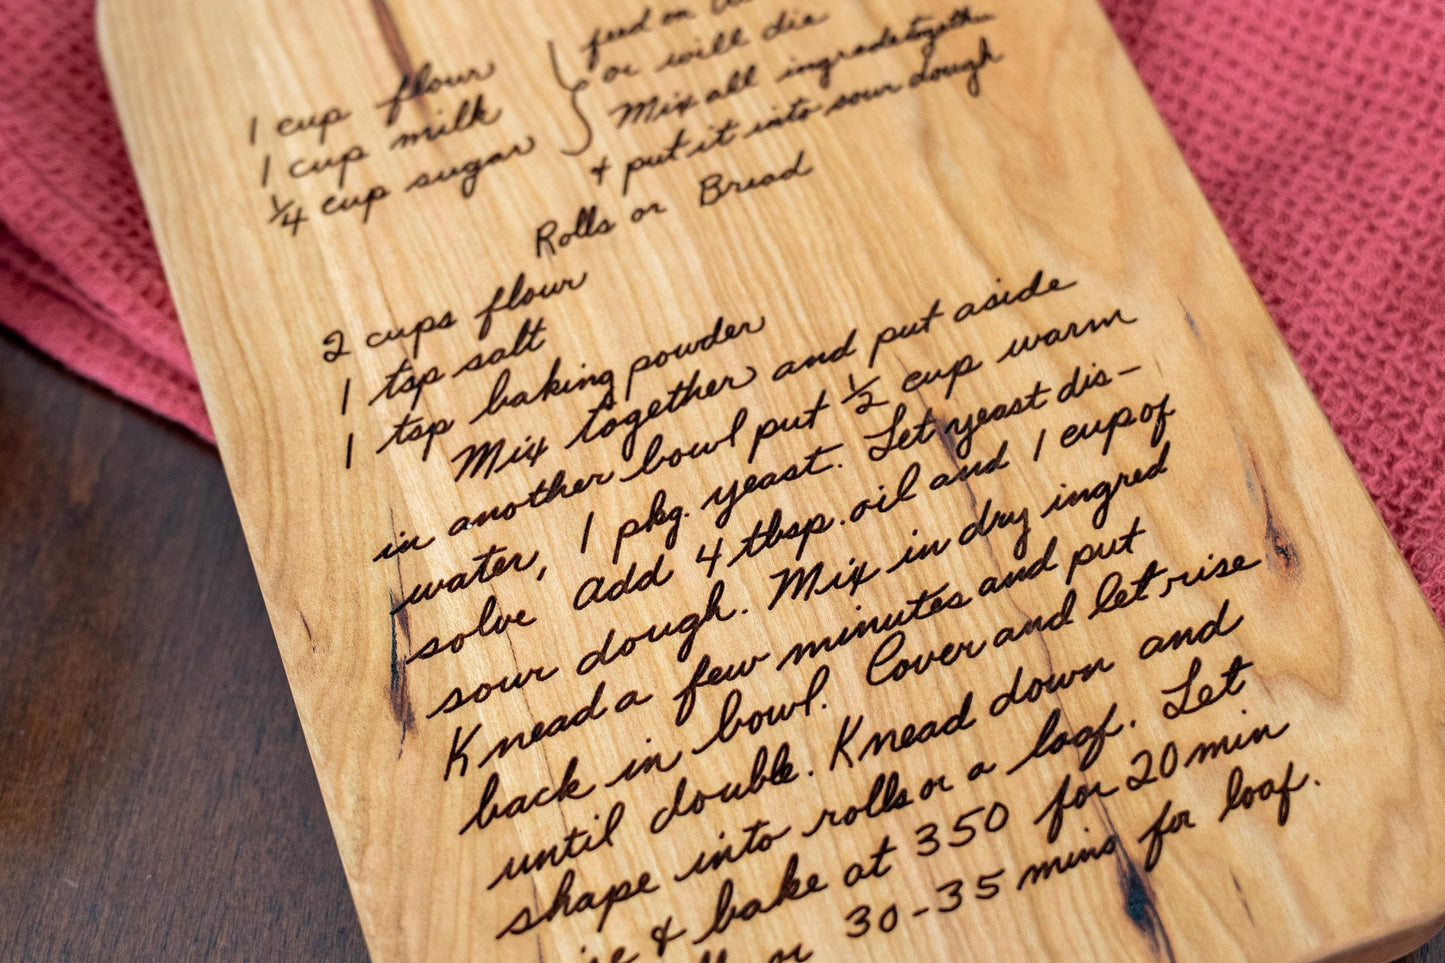 feed on
1 cup flour or will die
1 cup milk Mix all ingrade together
¼ cup sugar & put it into sour dough
Rolls or Bread
2 cups flour
1 tsp salt
1 tsp baking powder
Mix together and put aside
in another bowl put ½ cup warm
water, 1 pkg. yeast. Let yeast dis-
solve add 4 tbsp. oil and 1 cup of
sour dough. Mix in dry ingred
Knead a few minutes and put
back in bowl. Cover and let rise
until double. Knead down and
shape into rolls or a loaf. Let
& bake at 350 for 20 min
or 30-35 mins for loaf.